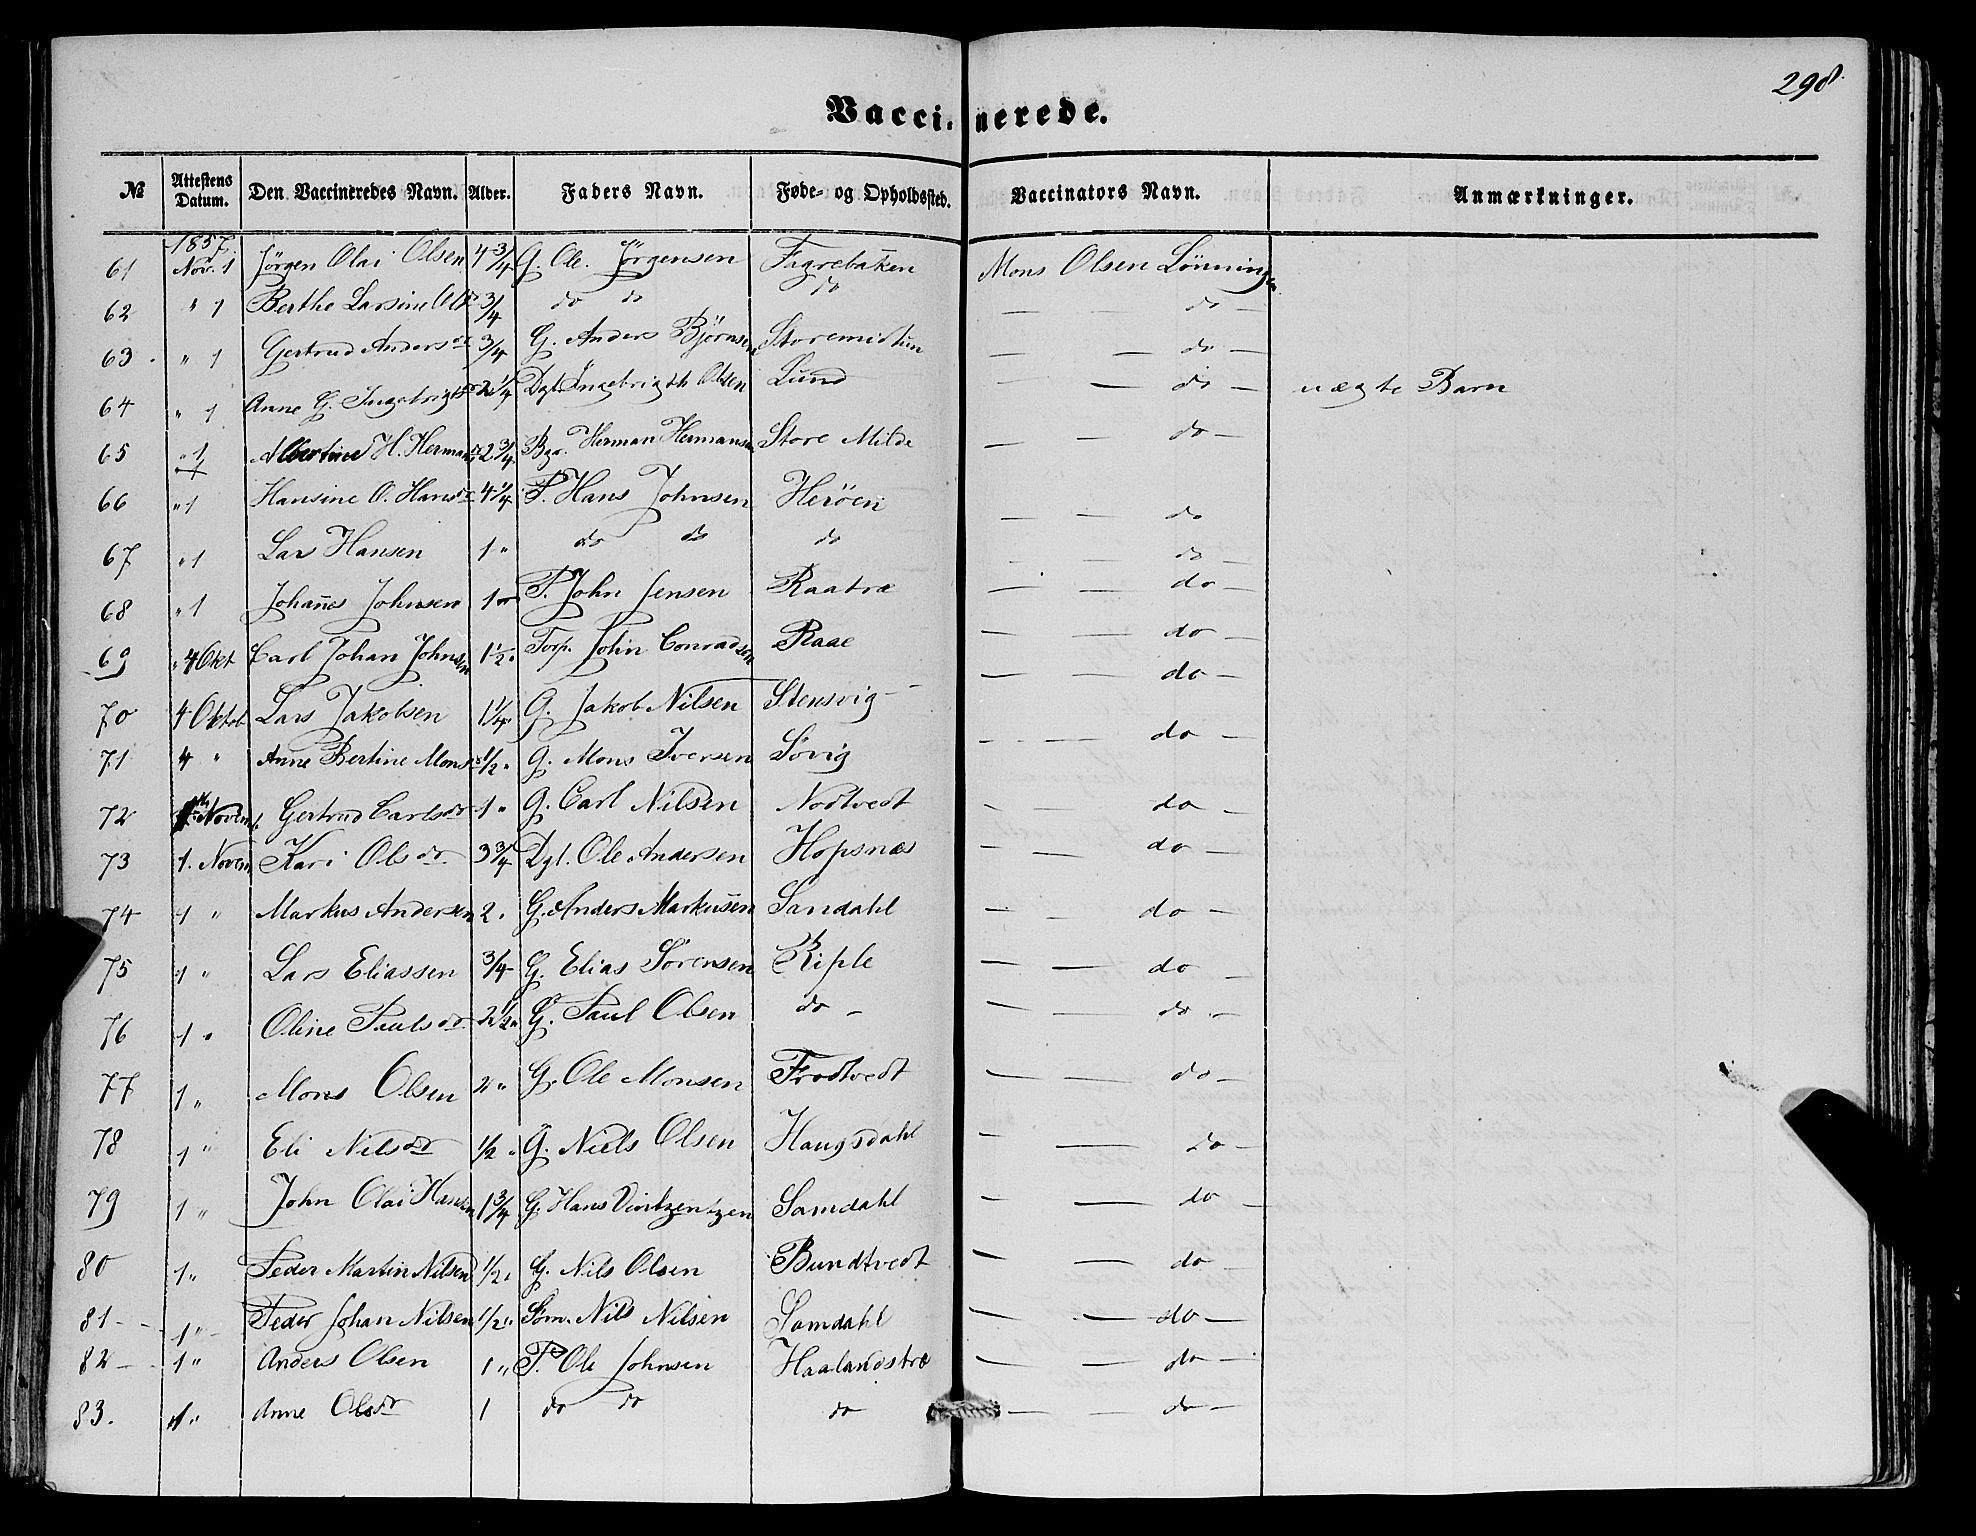 298
Vaccinerede.
№ Attestens Datum. Den Vaccineredes Navn. Alder. Faders Navn. Føde- og Opholdssted. Vaccinators Navn. Anmærkninger.
1857.
61 Nov. 1 Jörgen Olai Olsen 4 3/4 G. Ole Jörgensen Fagrebaken Mons Olsen Lönningen
62 " 1 Berthe Larsine Olsdr 3/4 do do do — — do —
63 " 1 Gertrud Andersdr 3/4 G. Anders Björnsen Storemidtun — — do —
64 " 1 Anne G. Ingebrigtsdr 2 1/4 Dgl. Ingebrigth Olsen Lund — — do — uægte Barn
65 " 1 Albertine H. Hermansdr 2 3/4 Herman Hermansen Store Milde — — do —
66 " 1 Hansine O. Hansdr 4 1/4 P. Hans Johnsen Heröen — — do
67 " 1 Lars Hansen 1 " do do do — — do —
68 " 1 Johanes Johnsen 1 " P. John Jensen Raatræ — — do —
69 " 4 Okt Carl Johan Johnsen 1 1/2 " Torp. John Conradsen Raae — — do —
70 4 Oktob Lars Jakobsen 1 1/4 G. Jakob Nilsen Stensvig — — do —
71 4 " Anne Bertine Monsdr 1/2 " G. Mons Iversen Sövig — — do —
72 1 Novemb. Gertrud Carlsdr 1 " G. Carl Nilsen Nodtvedt — — do —
73 1. Novem Kari Olsdr 3 3/4 Dgl. Ole Andersen Hopsnæs — — do —
74 1 " Markus Andersen 2 " G. Anders Markusen Samdahl — — do —
75 1 " Lars Eliassen 3/4 G. Elias Sörensen Riple — — do —
76 1 " Oline Paulsdr 2 1/2 " G. Paul Olsen do — — — do —
77 1 " Mons Olsen 2 " G. Ole Monsen Frodtvedt — — do —
78 1 " Eli Nilsdr 1/2 " G. Niels Olsen Haugsdahl — — do —
79 1 " John Olai Hansen 1 3/4 G. Hans Vintzentzen Samdahl — — do —
80 1 " Peder Martin Nilsen 1/2 " G. Nils Olsen Bundtvedt — — do —
81 1 " Peder Johan Nilsen 1/2 " Söm. Nils Nilsen Samdahl — — do —
82 1 " Anders Olsen 1 " P. Ole Johnsen Haalandstræ — — do —
83. 1 " Anne Olsdr 1 do do do — — do —